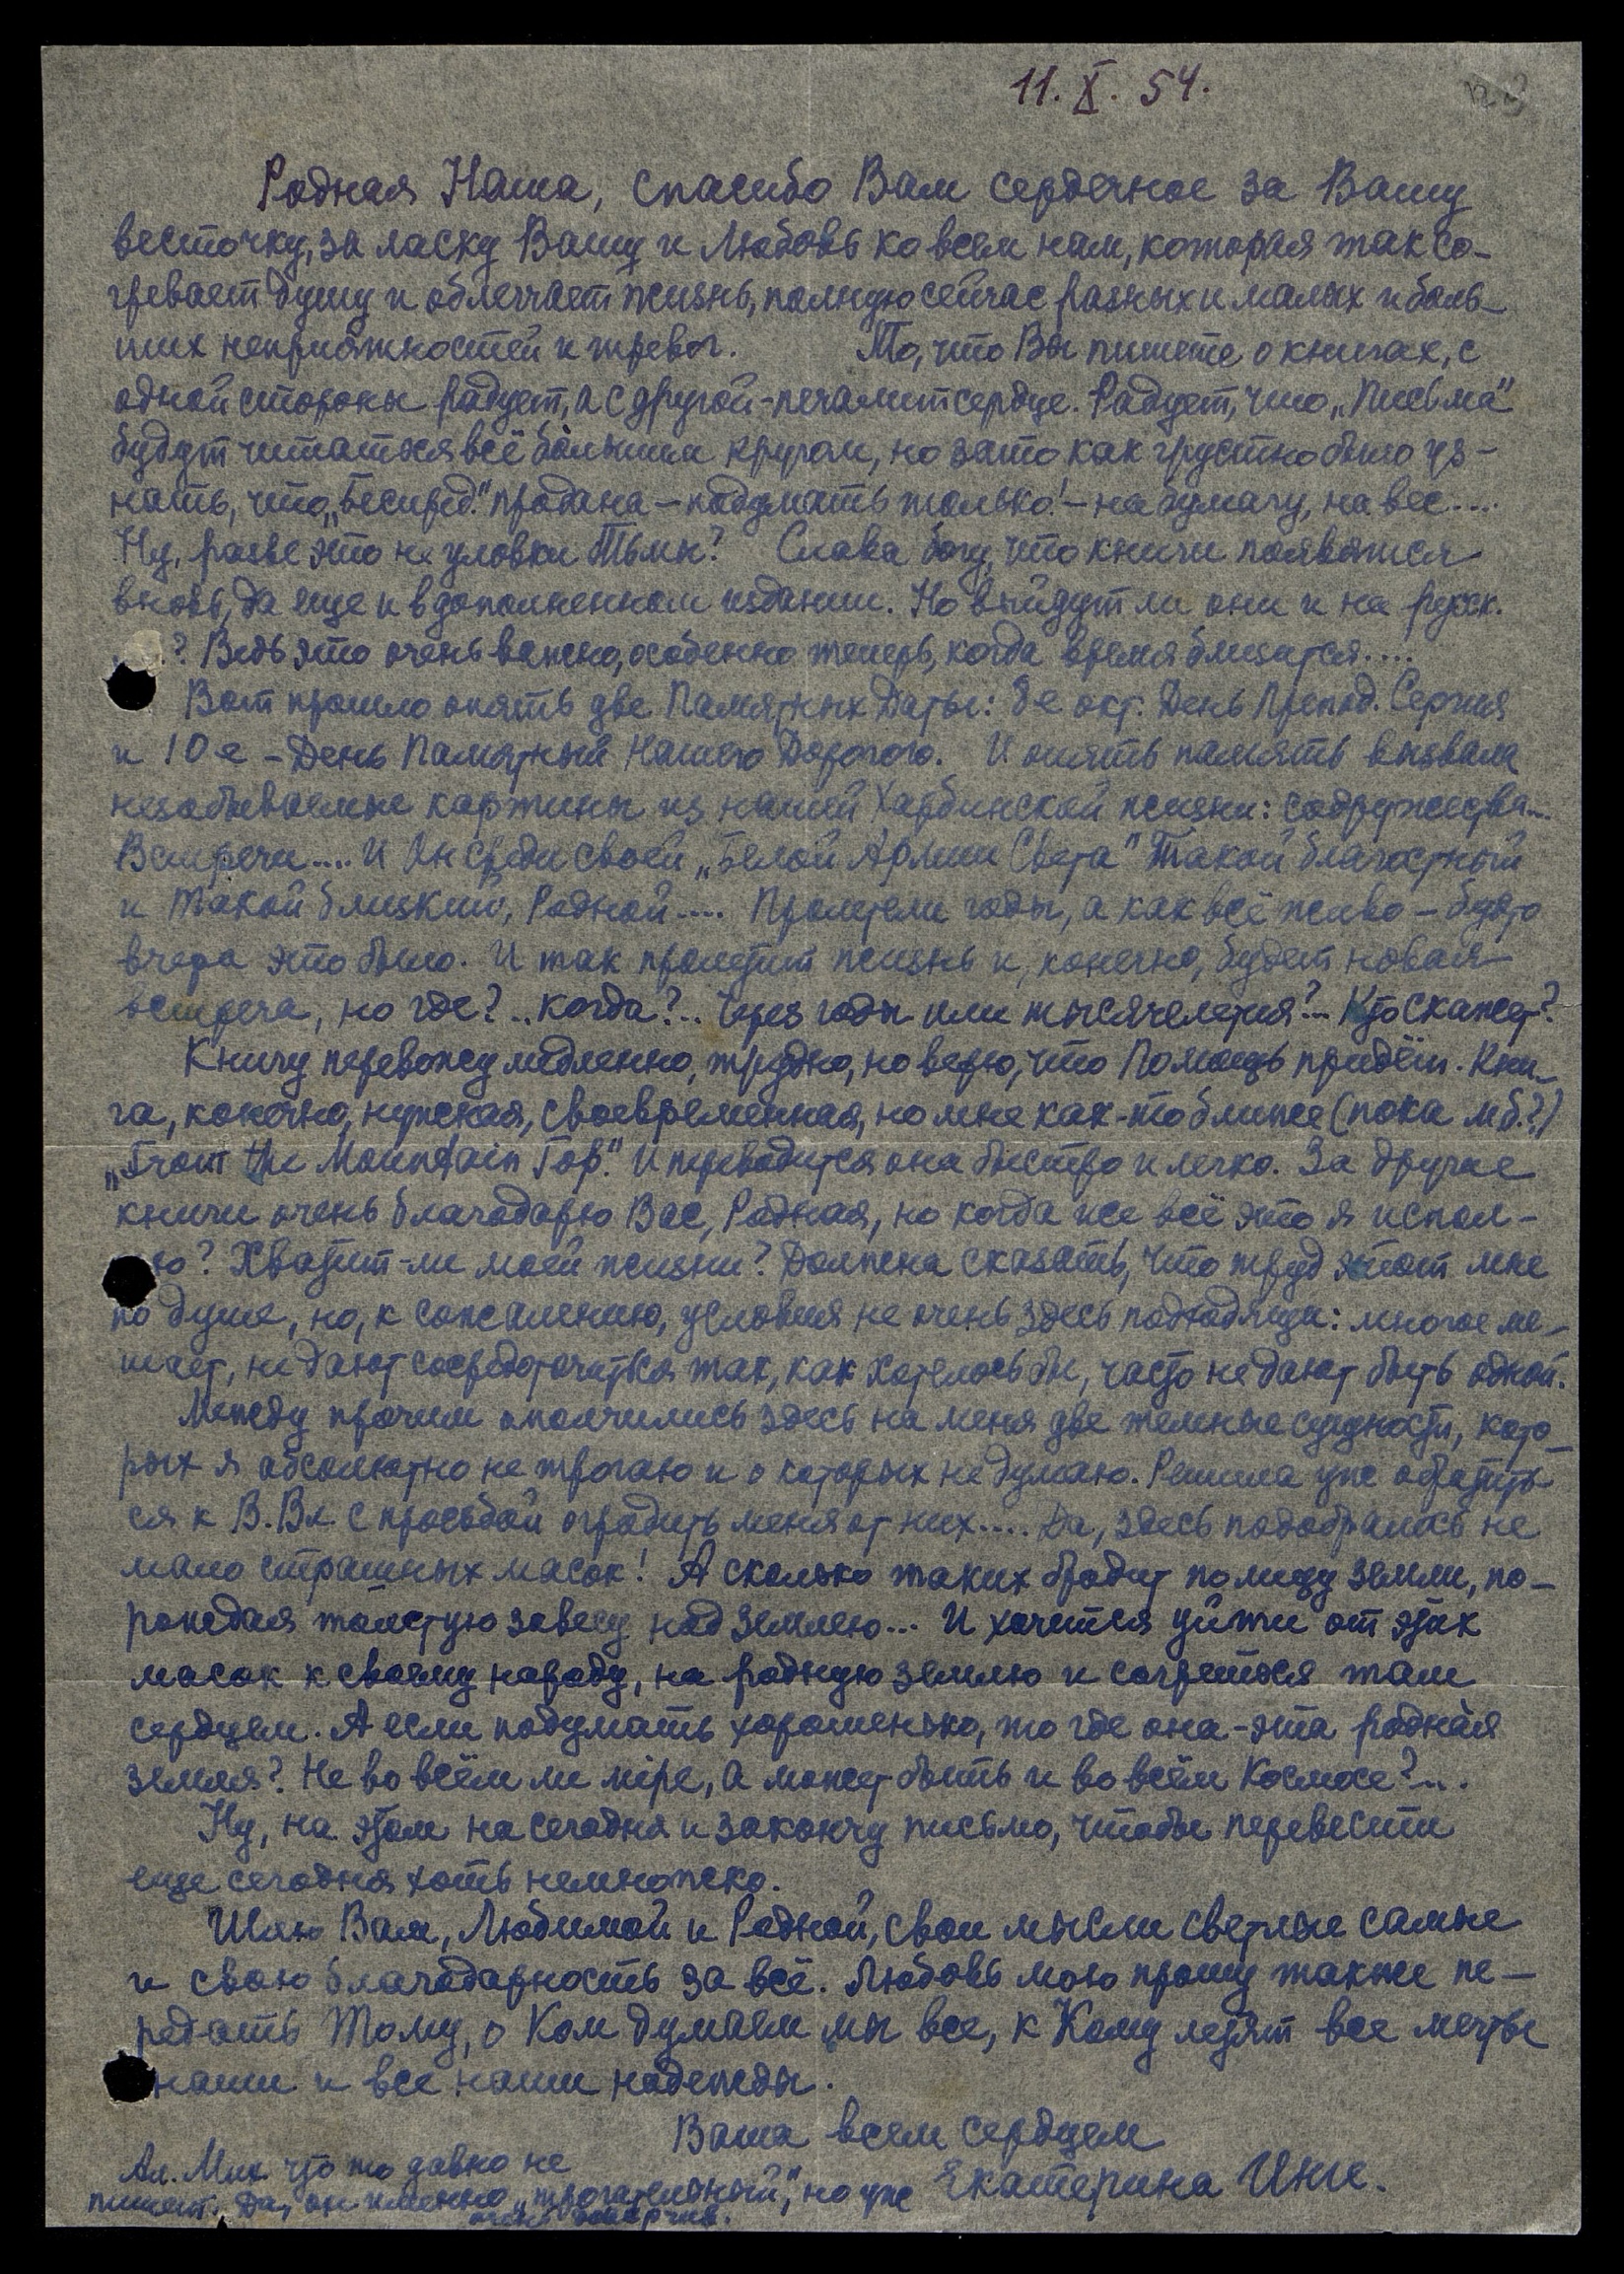 11. X. 54.
Родная Наша, спасибо Вам сердечное за Вашу
весточку, за ласку Вашу и Любовь ко всем нам, которая так со-
гревает душу и облегчает жизнь, полную сейчас разных и малых и боль-
ших неприятностей и тревог. То, что Вы пишете о книгах, с
одной стороны радует, а с другой - печалит сердце. Радует, что „Письма"
будут читаться всё бо́льшим кругом, но зато как грустно было уз-
нать, что „Беспред." продана – подумать только! – на бумагу, на вес....
Ну, разве это не уловки Тьмы? Слава богу, что книги появятся
вновь, да еще и в дополненном издании. Но выйдут ли они и на русск.
? Ведь это очень важно, особенно теперь, когда время близится....
Вот прошло опять две Памятных Даты: 8е окт. День Препод. Сергия
и 10е – День Памятный Нашего Дорогого. И опять память вызвала
незабываемые картины из нашей Харбинской жизни: содружества...
Встречи.... И Он среди своей „Белой Армии Света" Такой благостный
и Такой близкий, Родной.... Пролетели годы, а как всё живо – будто
вчера это было. И так пролетит жизнь и, конечно, будет новая
встреча, но где?.. когда?.. Через годы или тысячелетия?... Кто скажет?
Книгу перевожу медленно, трудно, но верю, что Помощь придёт. Кни-
га, конечно, нужная, своевременная, но мне как-то ближе (пока м.б.?)
„From the Mountain Top." И переводится она быстро и легко. За другие
книги очень благодарю Вас, Родная, но когда же всё это я испол-
ю? Хватит-ли моей жизни? Должна сказать, что труд этот мне
по душе, но, к сожалению, условия не очень здесь подходящи: многое ме-
шает, не дают сосредоточиться так, как хотелось бы, часто не дают быть одной.
Между прочим ополчились здесь на меня две темные сущности, кото-
рых я абсолютно не трогаю и о которых не думаю. Решила уже обратить-
ся к В.Вл. с просьбой оградить меня от них.... Да, здесь подобралось не
мало страшных масок! А сколько таких бродит по лицу земли, по-
рождая толстую завесу над Землею... И хочется уйти от этих
масок к своему народу, на родную землю и согреться там
сердцем. А если подумать хорошенько, то где она - эта родная
земля? Не во всём ли мiре, а может быть и во всём Космосе?...
Ну, на этом на сегодня и закончу письмо, чтобы перевести
еще сегодня хоть немножко.
Шлю Вам, Любимой и Родной, свои мысли светлые самые
и свою благодарность за всё. Любовь мою прошу также пе-
редать Тому, о Ком думаем мы все, к Кому летят все мечты
наши и все наши надежды.
Ваша всем сердцем
Екатерина Инге.
Ал. Мих. что то давно не
пишет. Да, он именно „трогательный", но уже
очень